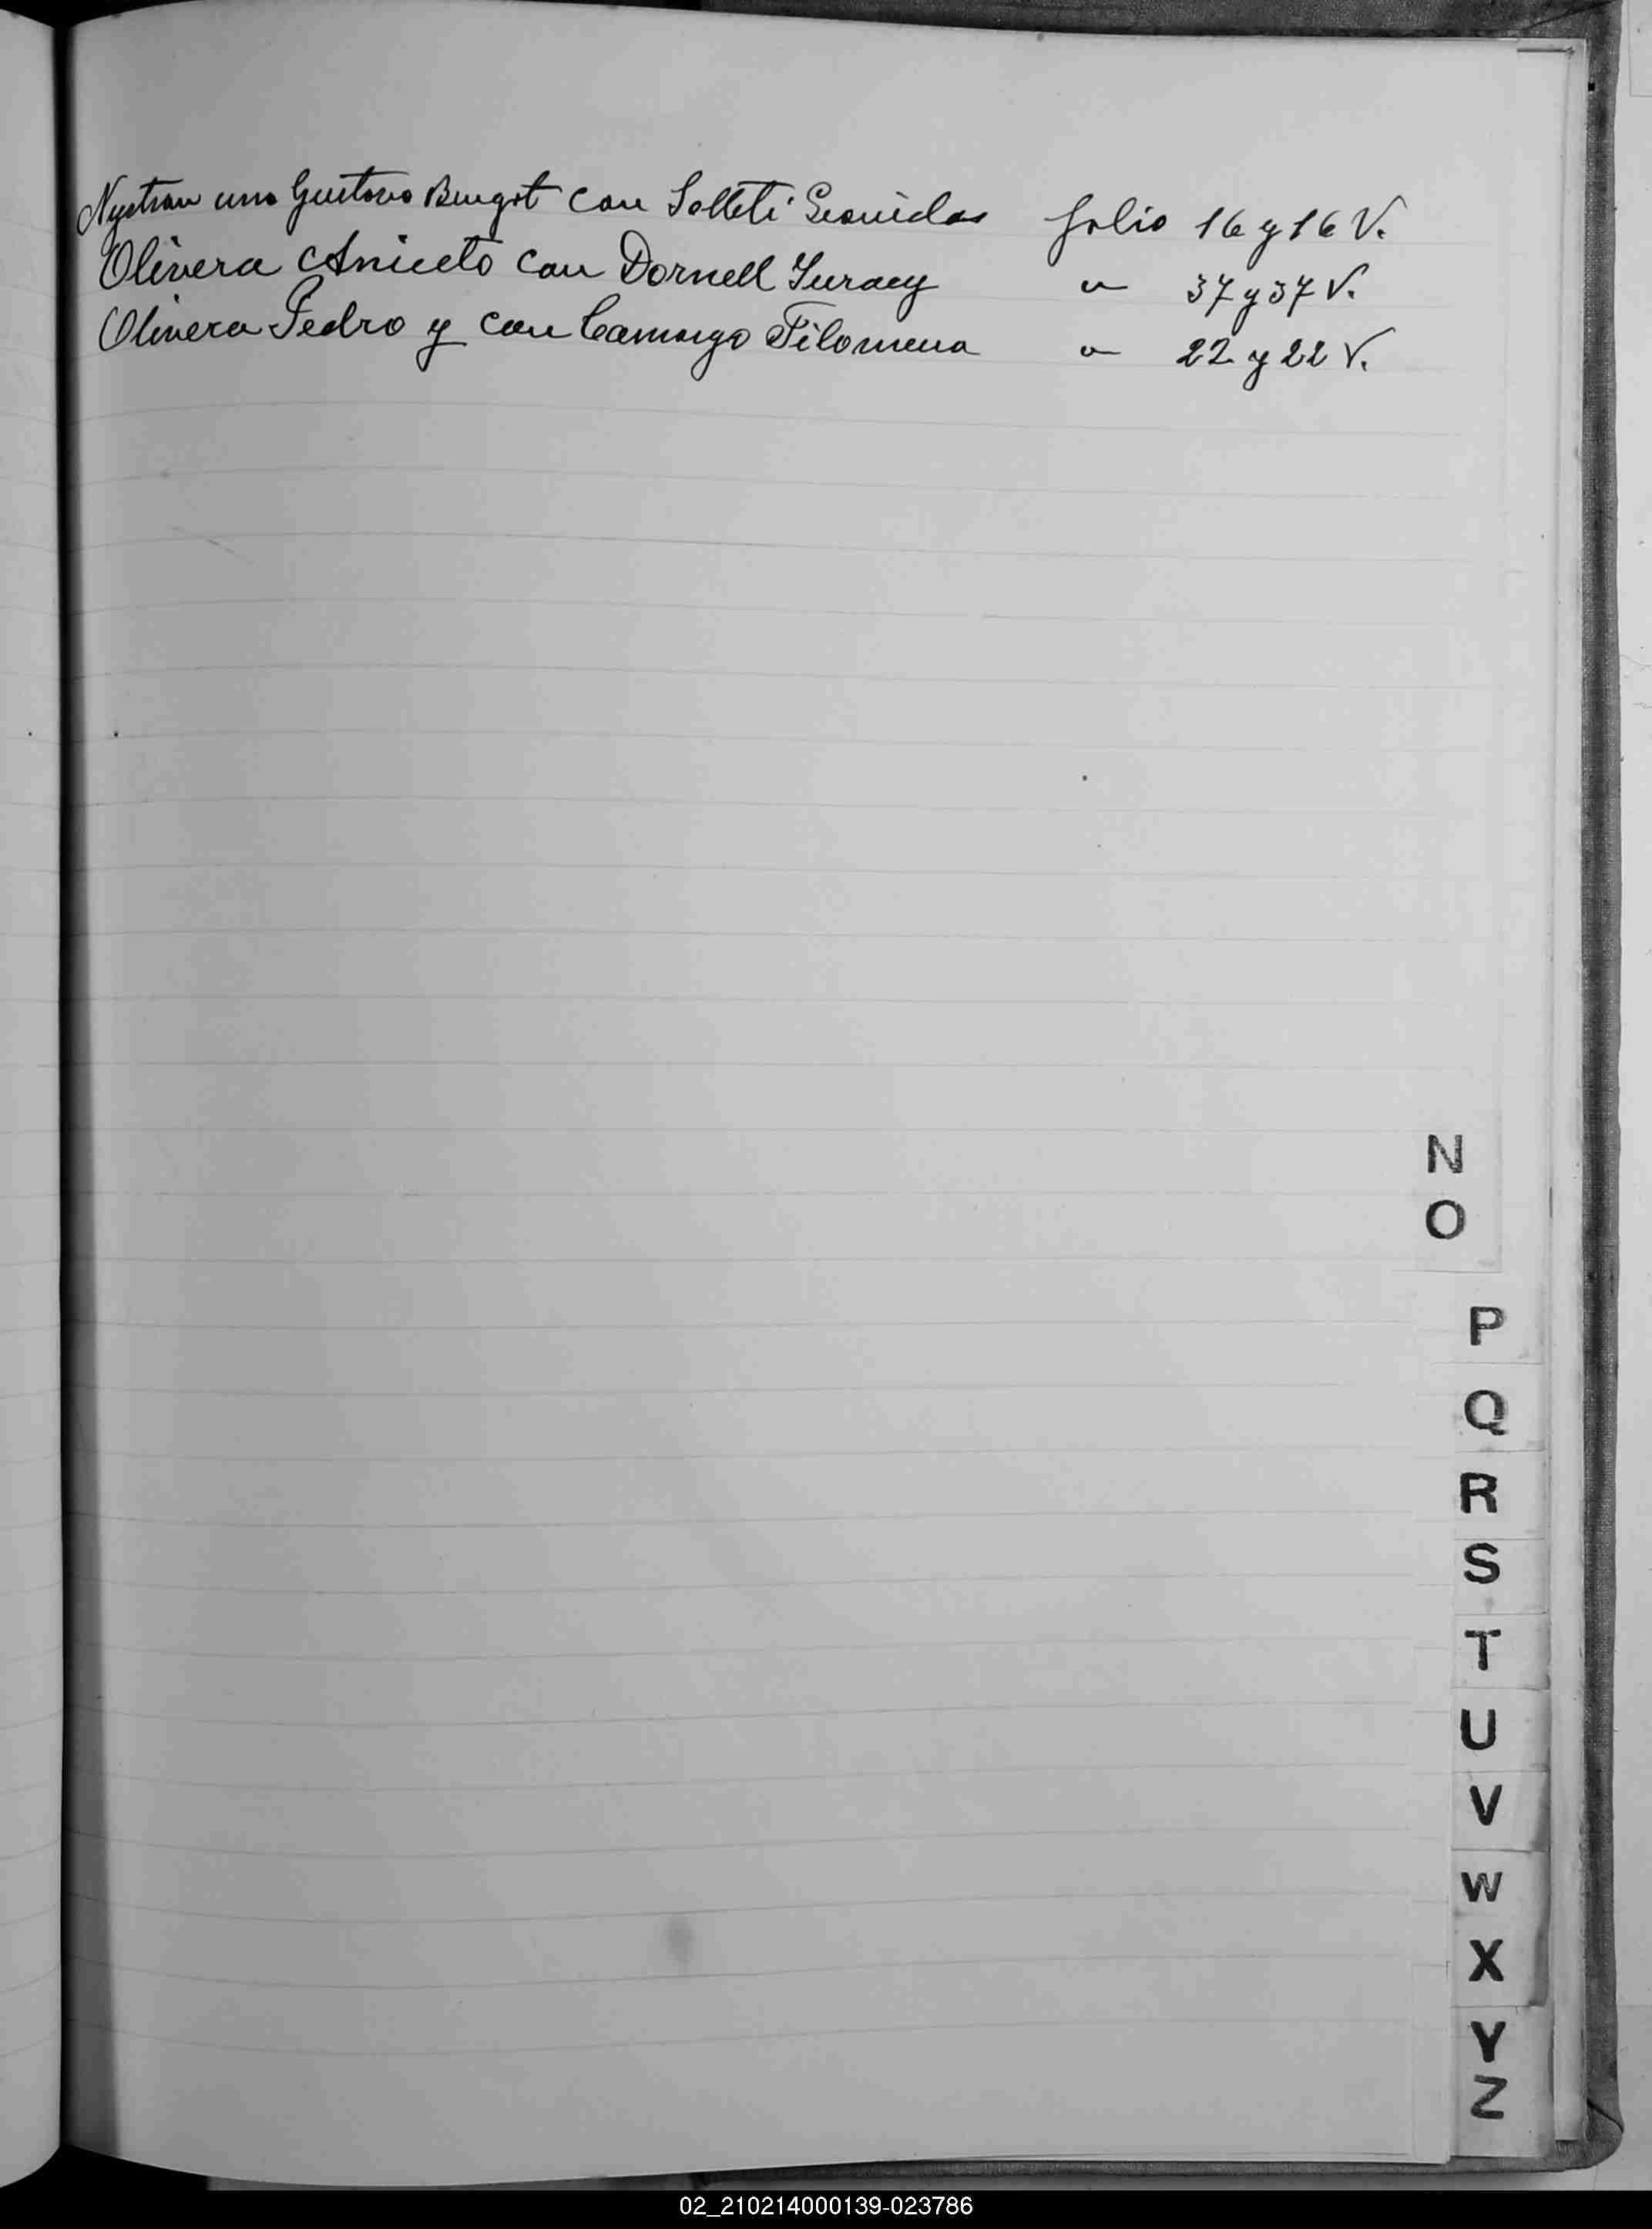 Nystran uno Gustavo Bengt con Solleti Leonidas folio 16 y 16 V.
Olivera Aniceto con Dornell Juracy " 37 y 37 V.
Olivera Pedro y con Camargo Filomena " 22 y 22 V.
N
O
P
Q
R
S
T
U
V
W
X
Y
Z
02_210214000139-023786